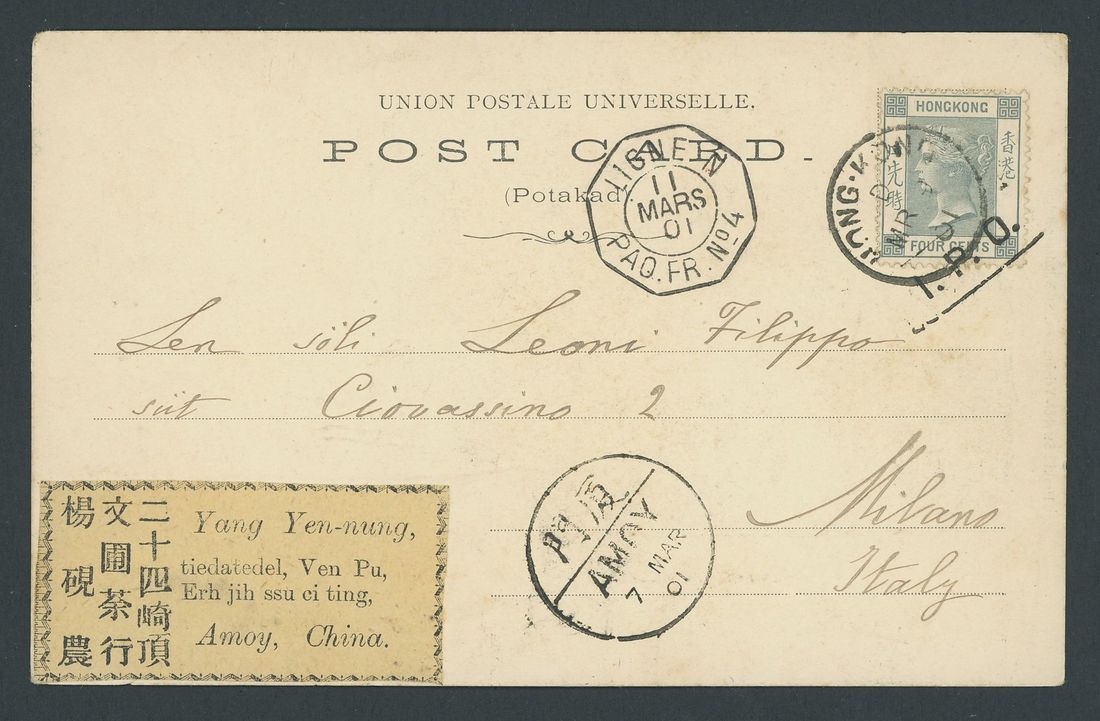 UNION POSTALE UNIVERSELLE.
POST CARD.
(Potakad)
LIGNE N
11
MARS
01
PAQ. FR. No4
HONGKONG
香港
先時
FOUR CENTS
HONG-KONG
D
MR
01
I.P.O.
Sen söli Leoni Filippo
süt Ciovassino 2
Milano
Italy
廈門
AMOY
7 MAR 01
二十四崎頂
文圃茶行
楊硯農
Yang Yen-nung,
tiedatedel, Ven Pu,
Erh jih ssu ci ting,
Amoy, China.